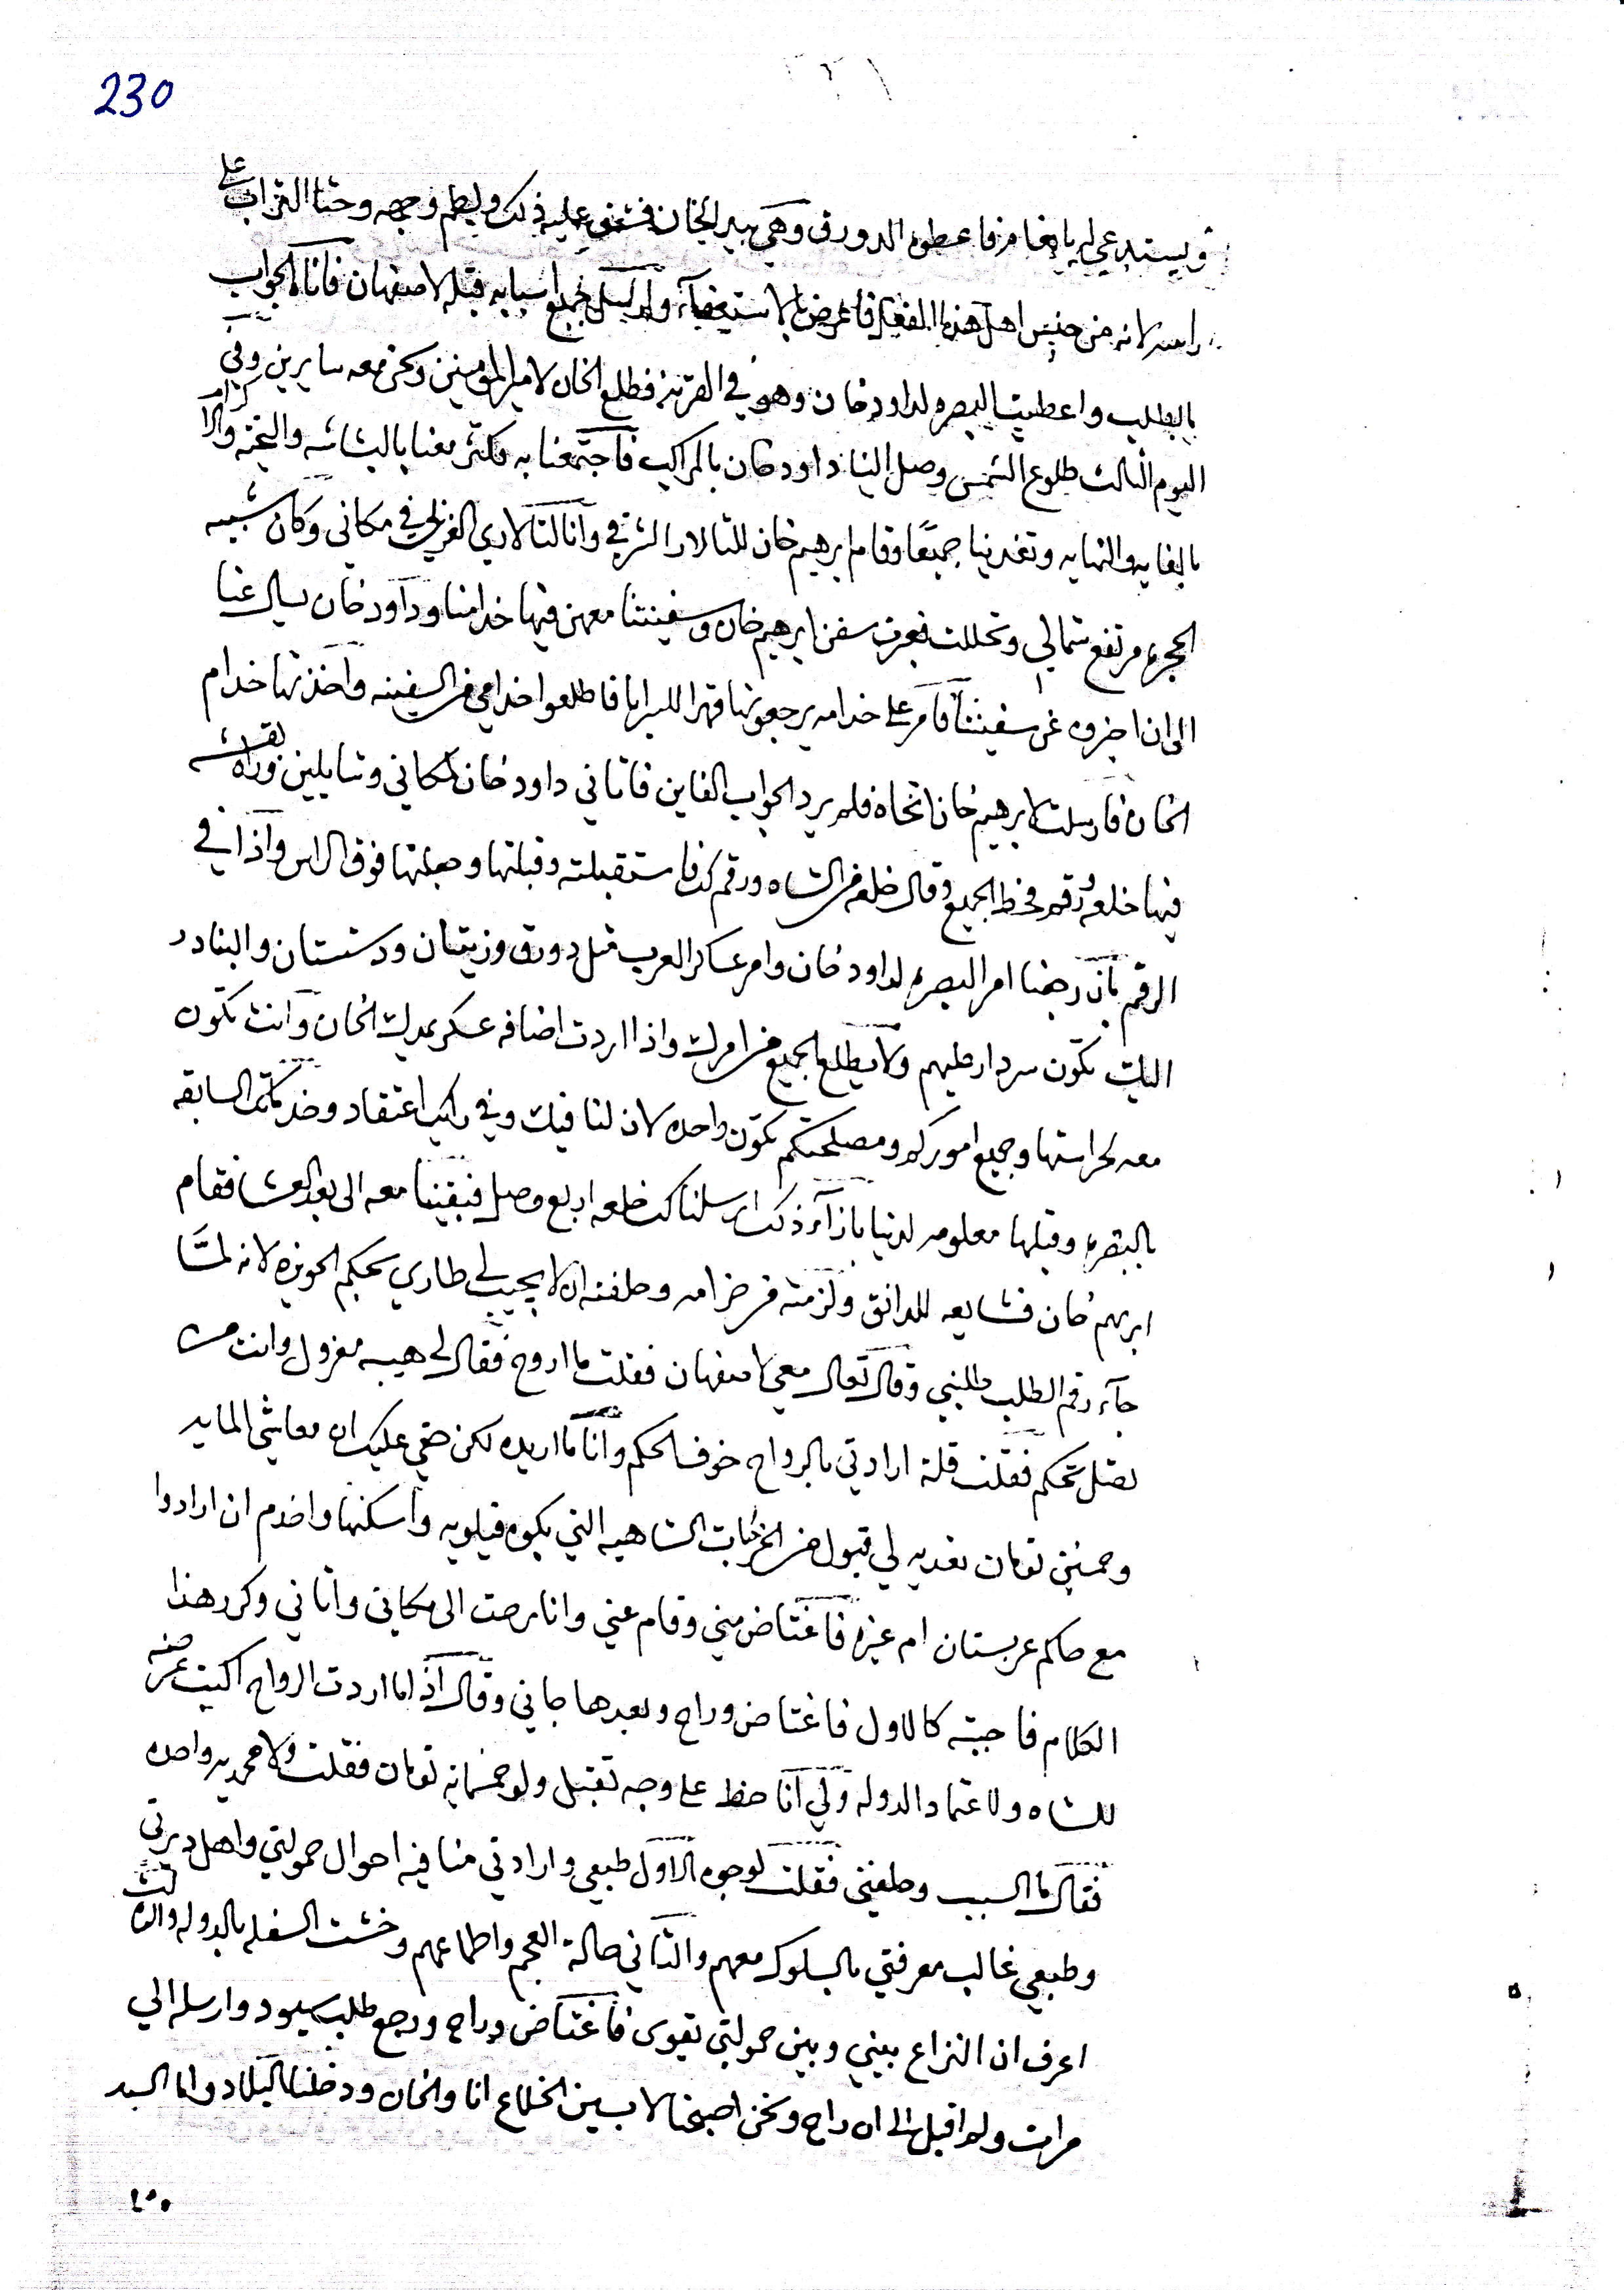 230
ويستدعي له بانعام فاعطوه الدورق وهي بيد الخان فشق عليه ذلك ولطم وجهه وحثا التراب على
راسه لانه من جنس اهل هذه الفعال فاعرض بالاستعفاء وارسل جميع اسبابه قبله لاصفهان فاتاه الجواب
بالطلب واعطيت البصره لداود خان وهو في القرنه فطلع الخان لامير المومنين ونحن معه سايرين وفي
اليوم الثالث طلوع الشمس وصل الينا داود خان بالمراكب فاجتمعنا به فكثر معنا بالبشاشه والتحيه والاكرام
بالغايه والنهايه وتغدينا جميعًا وقام ابرهيم خان للتالار الشرقي وانا لتالاري الغربي في مكاني وكان شبيه
الحجره مرتفع شمالي وتخللت فجرت سفن ابرهيم خان وسفينتنا معهن فيها خدامنا وداود خان يسال عنا
الى ان اخبروه عن سفينتنا فامر على خدامه يرجعونها قهرا للبر فاطلعوا خدامي من السفينه واخذتها خدام
الخان فارسلت لابرهيم خان اتخاه فلم يرد الجواب الفاين فاتاني داود خان لمكاني وشايلين وراه بقشه
فيها خلعه ورقم فحط الجميع وقال خلعه من الشاه ورقم لك فاستقبلته وقبلتها وجعلتها فوق الراس واذا في
الرقم بان رجعنا امر البصره لداود خان وامر عساكر العرب مثل دورق وزيتان ودشتستان والبنادر
اليك تكون سردار عليهم ولا يطلع الجميع من امرك واذا اردت اضافه عسكر يمدك الخان وانت تكون
معه لحراستها وجميع اموركم ومصلحتكم تكون واحده لان لنا فيك وفي ابيك اعتقاد وخدماتك السابقه
بالبصره وقبلها معلومه لدينا بازاء ذلك ارسلنا لك خلعه اربع وصل فبقينا معه الى بعد العشا فقام
ابرهيم خان فشايعه للدانق ولزمته من حزامه وحلفته ان لا يجيب لي طاري بحكم الحويزه لانه لمَّا
جاء رقم الطلب طلبني وقال تعال معي لاصفهان فقلت ما اروح فقال لي هيبه معزول وانت من
تصل تحكم فقلت قلة ارادتي بالرواح خوف الحكم وانا ما اريده لكن حقي عليك ان معاشي المايه
وخمسين تومان تعديه لي قبول من الخربات الشاهيه التي بكوه قيلويه واسكنها واخدم ان ارادوا
مع حاكم عربستان ام غيره فاغتاض مني وقام عني وانا رحت الى مكاني واتاني وكرر هذا
الكلام فاجبته كالاول فاغتاض وراح وبعدها جاني وقال اذا ما اردت الرواح اكتب عرضه
للشاه ولاعتماد الدوله ولي انا حظ على وجه تقبل ولو خمسمايه تومان فقلت ولا محمديه واحده
فقال ما السبب وحلفني فقلت لوجوه الاول طبعي وارادتي منافيه احوال حمولتي واهل ديرتي
وطبعي غالب معرفتي بالسلوك معهم والثاني حالة العجم واطماعهم وخشت السفله بالدوله والثالث
اعرف ان النزاع بيني وبين حمولتي يقوى فاغتاض وراح ورجع طلب سيود وارسله الي
مرات ولم اقبل الى ان راح ونحن اصبحنا لابسين الخلاع انا والخان ودخلنا البلاد واما السيد
٤٥٠